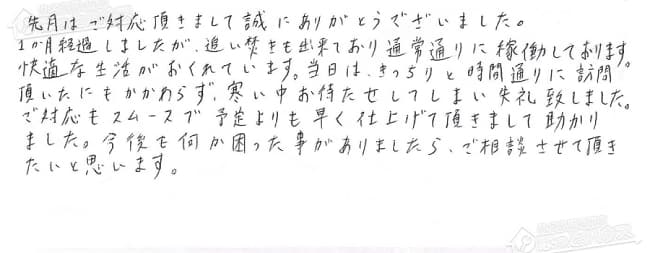 先月はご対応頂きまして誠にありがとうございました。
1か月経過しましたが、追い焚きも出来ており通常通りに稼働しております。
快適な生活がおくれています。当日は、きっちりと時間通りに訪問
頂いたにもかかわらず、寒い中お待たせしてしまい失礼致しました。
ご対応もスムーズで予定よりも早く仕上げて頂きまして助かり
ました。今後も何か困った事がありましたら、ご相談させて頂き
たいと思います。